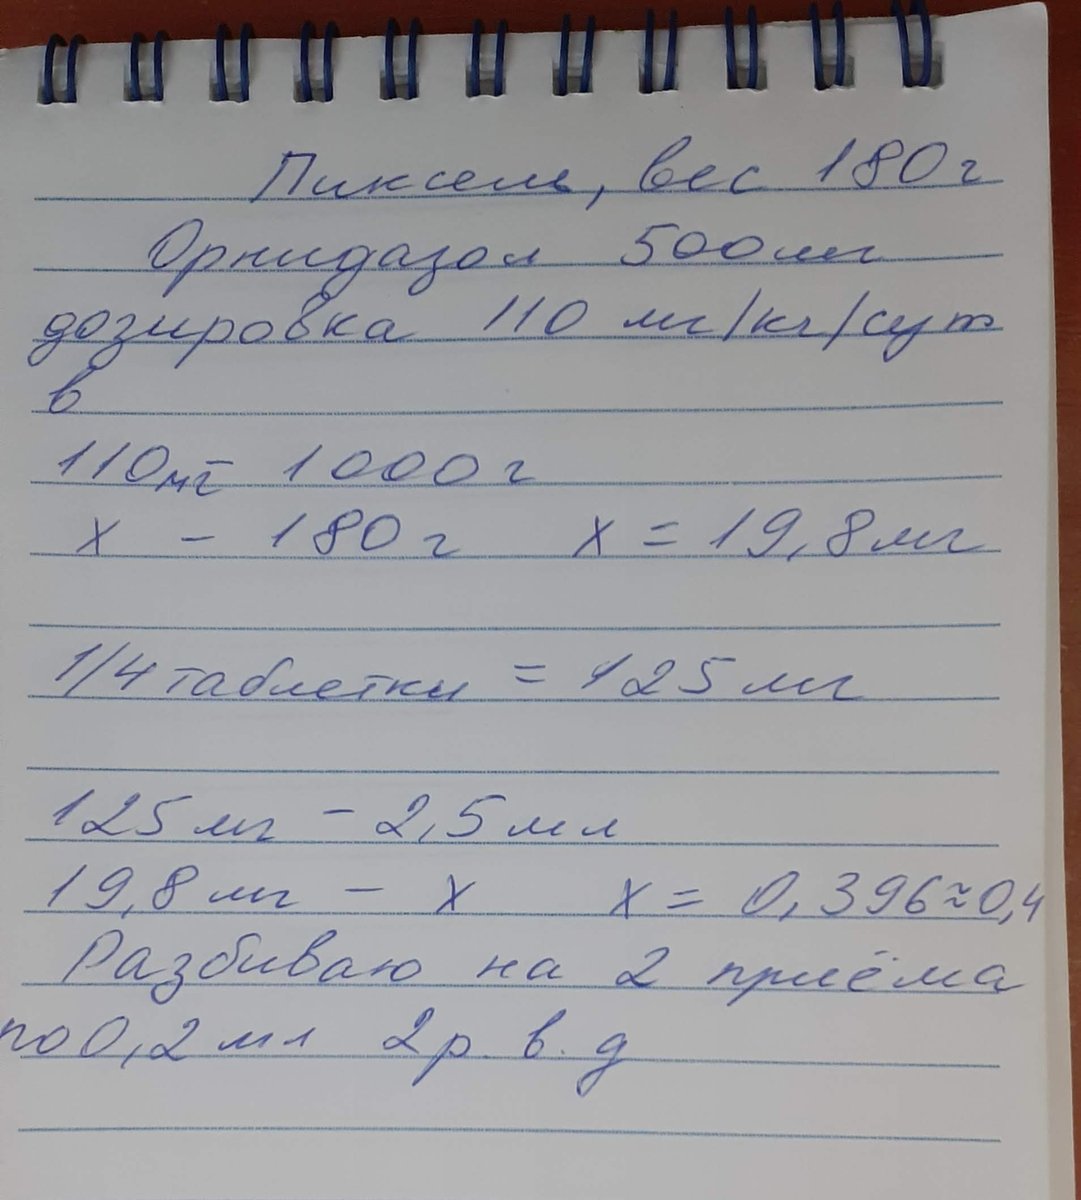 Пиксель, вес 180г
Орнидазол 500мг
дозировка 110 мг/кг/сут
в
110мг - 1000г
х - 180г х = 19,8мг
1/4 таблетки = 125 мг
125 мг - 2,5 мл
19,8 мг - х х = 0,396≈0,4
Разбиваю на 2 приёма
по 0,2 мл 2 р. в. д